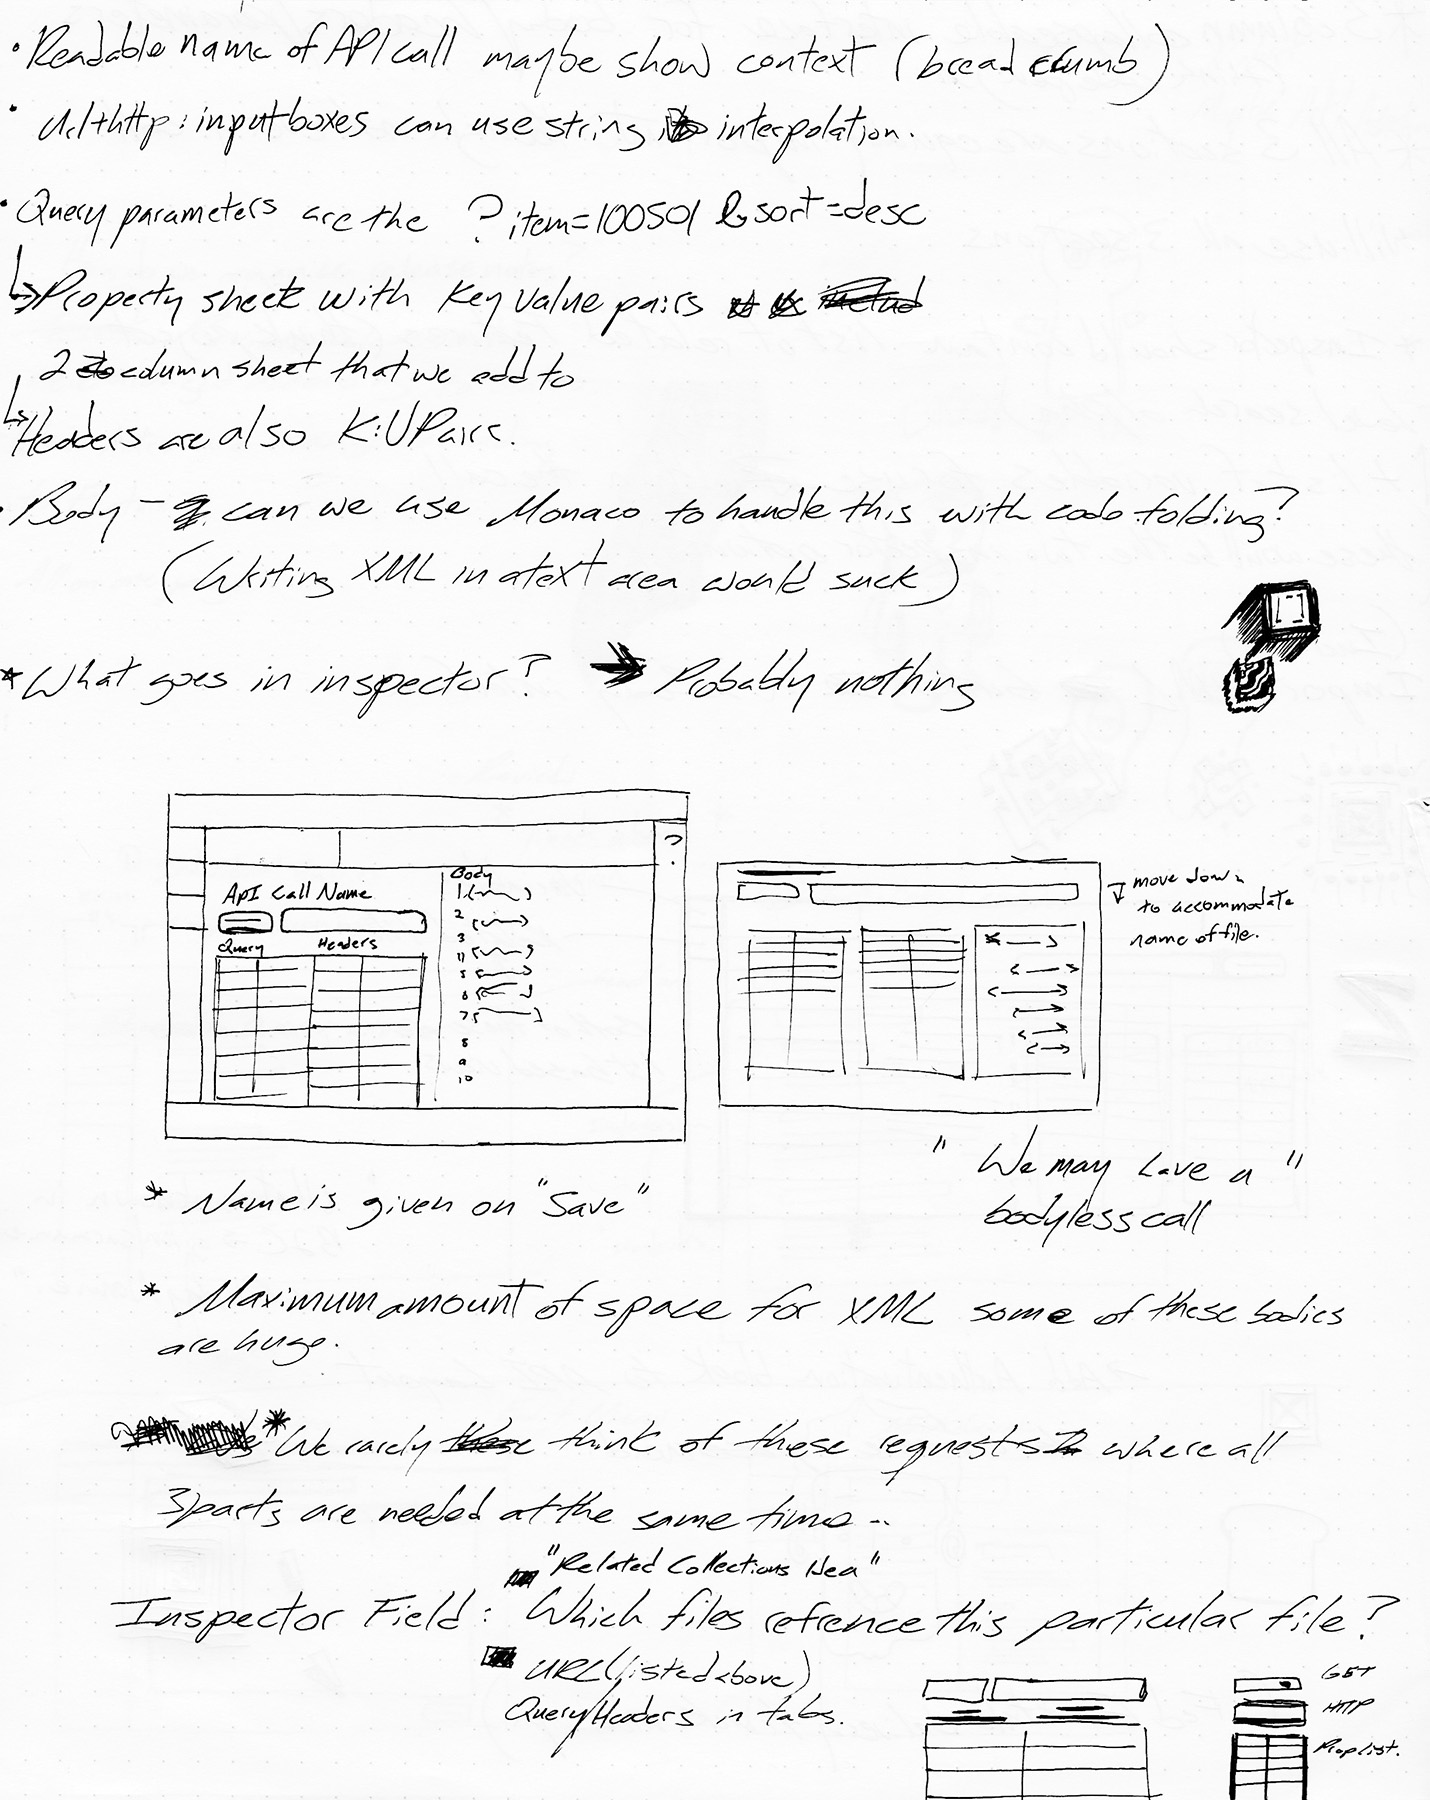 • Readable name of API call maybe show context (bread crumb)
• Url+http: input boxes can use string interpolation.
• Query parameters are the ?item=100501 &sort=desc
↳ Property sheet with key value pairs
2 column sheet that we add to
↳ Headers are also K:V Pairs.
• Body - can we use Monaco to handle this with code folding?
(Writing XML in a text area would suck)
* What goes in inspector? → Probably nothing
API Call Name
Query Headers
Body
1
2
3
4
5
6
7
8
9
10
?
move down
to accommodate
name of file.
"We may have a"
bodyless call
* Name is given on "Save"
* Maximum amount of space for XML some of these bodies
are huge.
* We rarely these think of these requests where all
3 parts are needed at the same time..
"Related Collections Idea"
Inspector Field: Which files refrence this particular file?
URL (listed above)
Query/Headers in tabs.
GET
HTTP
Prop list.